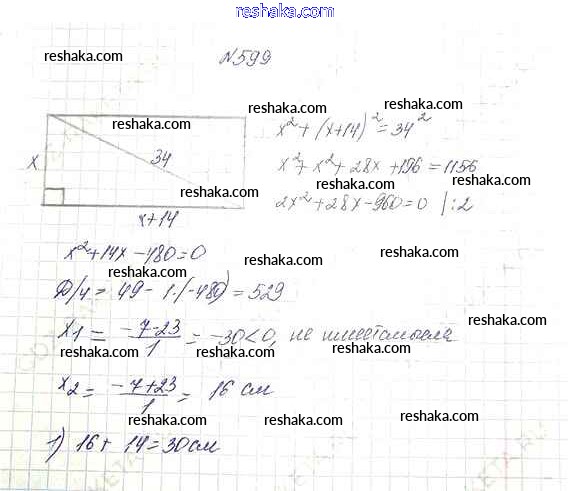 reshaka.com
reshaka.com
№599
reshaka.com
reshaka.com reshaka.com
x² + (x+14)² = 34²
reshaka.com
x 34
x² + x² + 28x + 196 = 1156
reshaka.com reshaka.com
2x² + 28x - 960 = 0 | :2
x+14
reshaka.com
x² + 14x - 480 = 0
reshaka.com
reshaka.com
D/4 = 49 - 1·(-480) = 529
reshaka.com
reshaka.com
x1 = -7-23/1 = -30<0, не имеет смысла
reshaka.com reshaka.com reshaka.com
x2 = -7+23/1 = 16 см
reshaka.com
reshaka.com
reshaka.com
1) 16 + 14 = 30 см
reshaka.com
reshaka.com